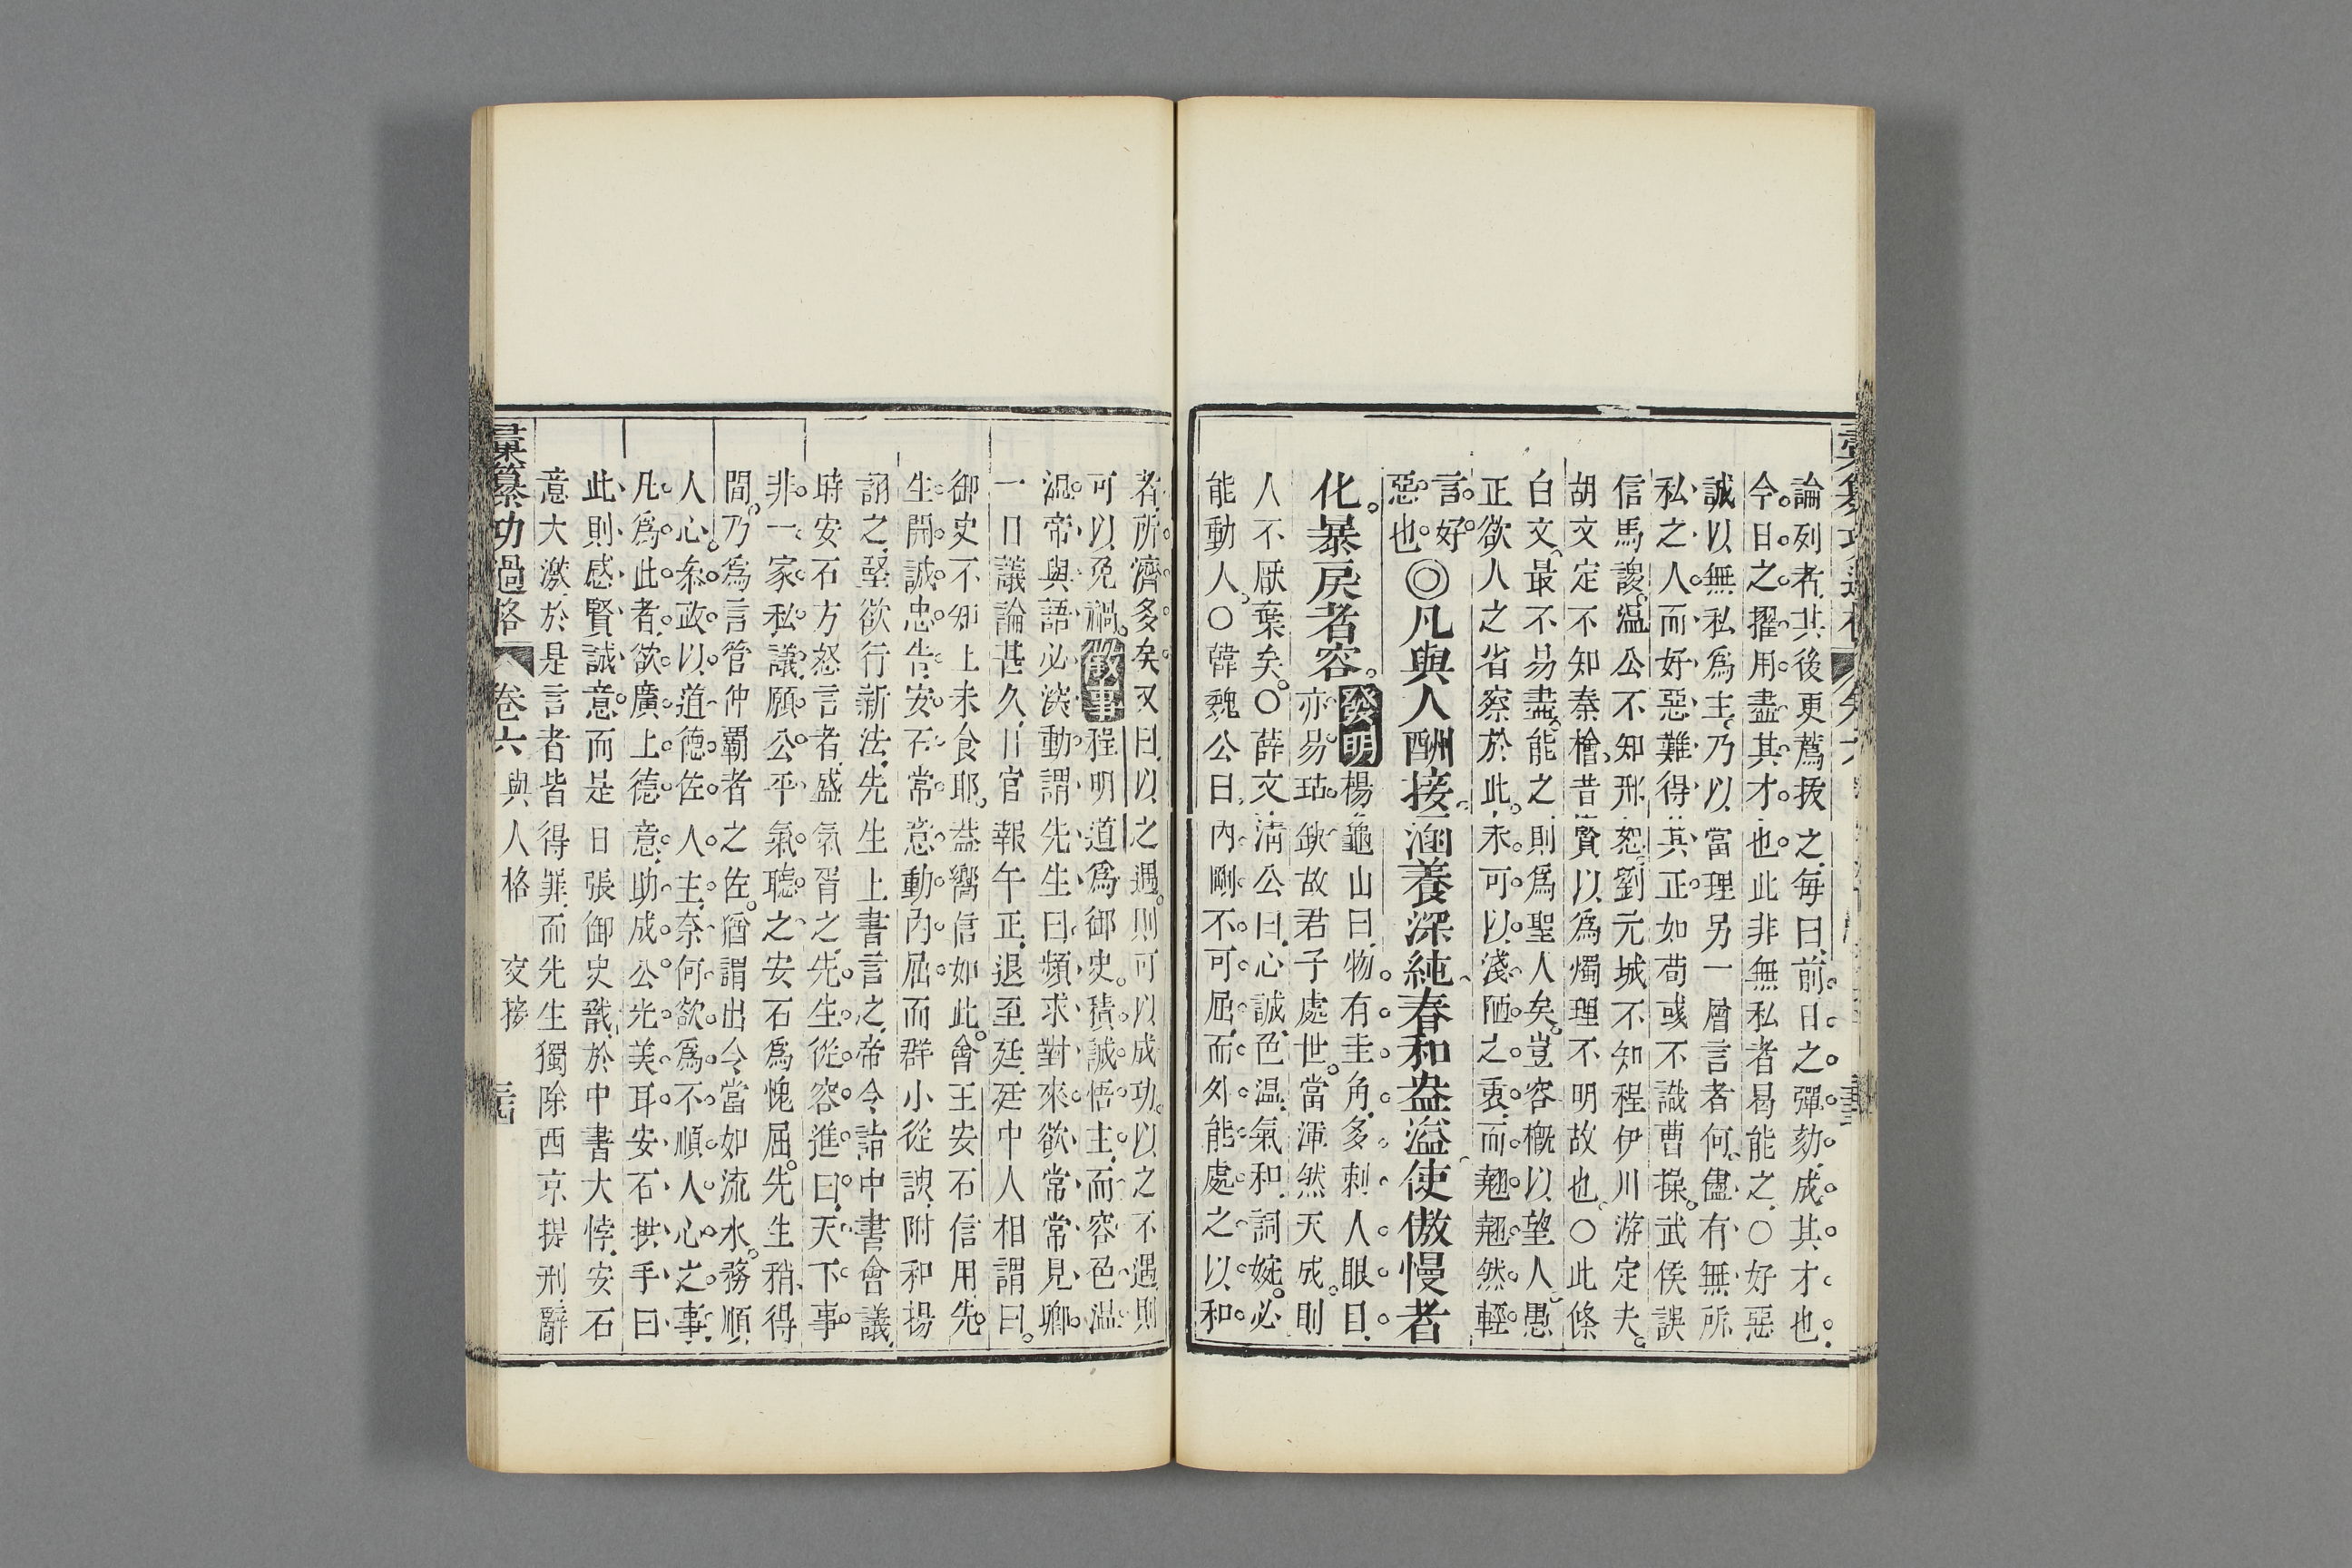 論列者其後更薦拔之每曰前日之彈劾成其才也
今日之擢用盡其才也此非無私者曷能之○好惡
誠以無私爲主乃以當理另一層言者何儘有無所
私之人而好惡難得其正如荀彧不識曹操武侯誤
信馬謖温公不知邢恕劉元城不知程伊川游定夫
胡文定不知秦檜昔賢以爲燭理不明故也○此條
白文最不易盡能之則爲聖人矣豈容槪以望人愚
正欲人之省察於此未可以淺陋之衷而翹翹然輕
言好
惡也◎凡與人酬接涵養深純春和盎溢使傲慢者
化暴戾者容發明楊龜山曰物有圭角多刺人眼目
亦易玷缺故君子處世當渾然天成則
人不厭棄矣○薛文淸公曰心誠色温氣和詞婉必
能動人○韓魏公曰內剛不可屈而外能處之以和
者所濟多矣又曰以之遇則可以成功以之不遇則
可以免禍徵事程明道爲御史積誠悟主而容色温
温帝與語必淡動謂先生曰頻求對來欲常常見卿
一日議論甚久日官報午正退至廷廷中人相謂曰
御史不知上未食耶益嚮信如此會王安石信用先
生開誠忠告安石常意動內屈而群小從諛附和揚
詡之堅欲行新法先生上書言之帝令詣中書會議
時安石方怒言者盛氣胥之先生從容進曰天下事
非一家私議願公平氣聽之安石爲愧屈先生稍得
間乃爲言管仲覇者之佐猶謂出令當如流水務順
人心叅政以道德佐人主奈何欲爲不順人心之事
凡爲此者欲廣上德意助成公光美耳安石拱手曰
此則感賢誠意而是日張御史戩於中書大悖安石
意大激於是言者皆得罪而先生獨除西京提刑辭
彙纂功過格 卷六 與人格 交接